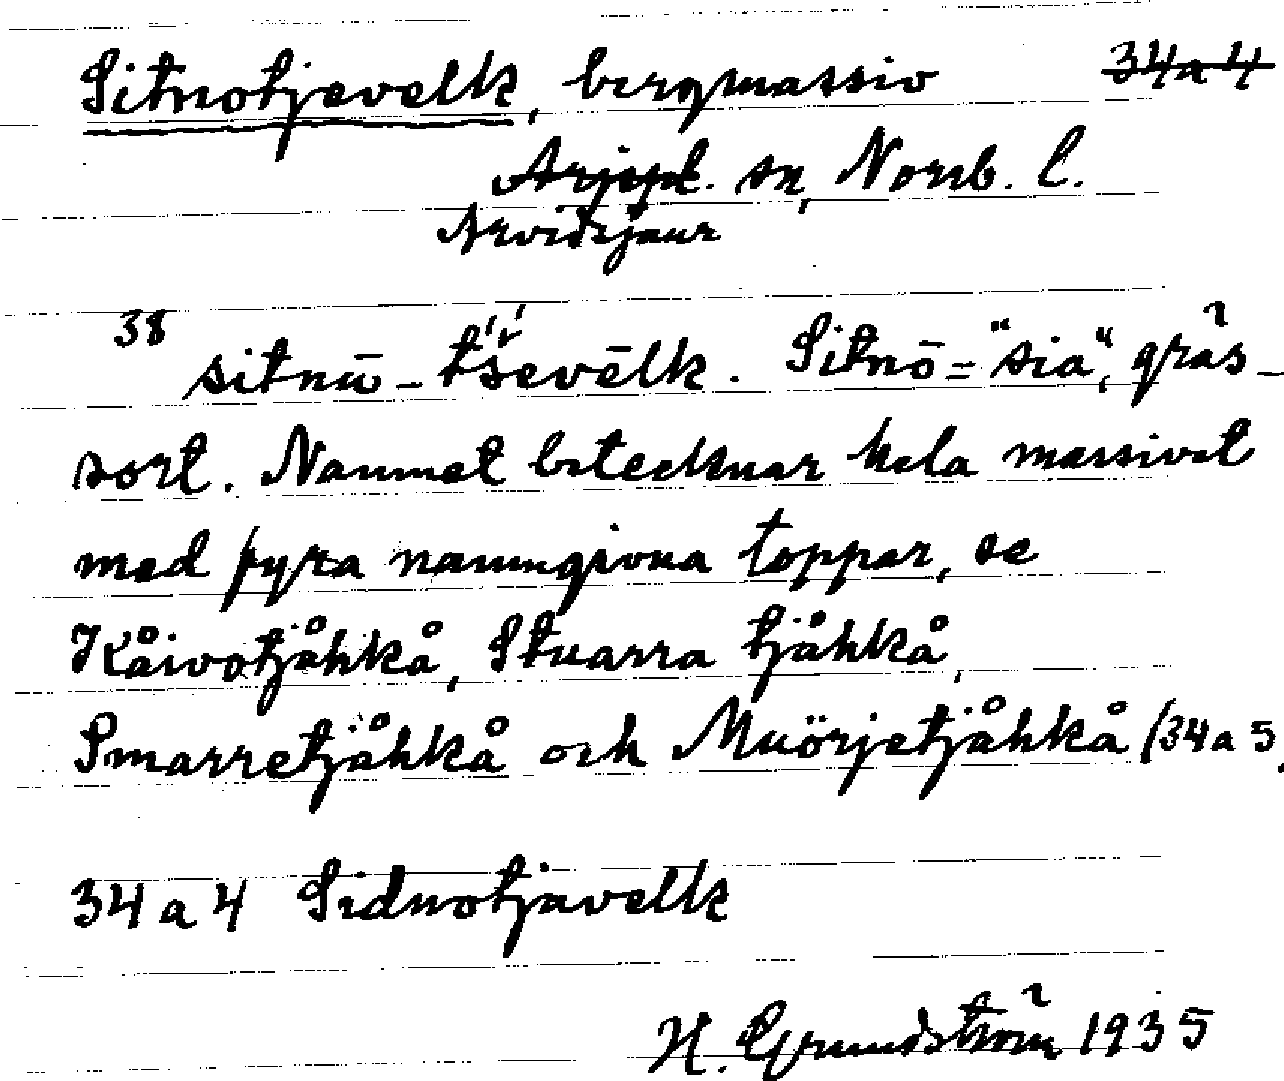 Sitnotjevelk, bergmassiv 34a4
Arjepl. sn, Norrb. l.
Arvidsjaur
38 sitnū - tševēlk. Sitnō = "sia", gräs-
sort. Namnet betecknar hela massivet
med fyra namngivna toppar, se
Kåivotjåhkå, Stuarra tjåhkå,
Smarretjåhkå och Muörjetjåhkå (34a5,
34a4 Sidnotjavelk
H. Grundström 1935